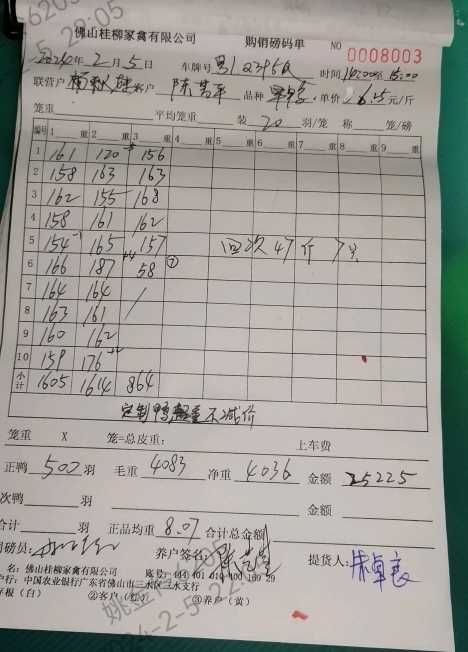 佛山桂柳家禽有限公司 购销磅码单 NO 0008003
2024年2月5日 车牌号 时间
联营户 客户 陈 品种 单价 6.25元/斤
笼重 平均笼重 装 20 羽/笼 称 笼/磅
编号 1 重 2 重 3 重 4 重 5 重 6 重 7 重 8 重 9 重
1 161 120 156
2 158 163 163
3 162 155 168
4 158 161 162
5 154 165 157 回次47斤 7只
6 166 187 58 ⑦
7 164 164 /
8 163 161
9 160 162
10 159 176
小计 1605 1614 864
定制鸭超重不减价
笼重 X 笼=总皮重: 上车费
正鸭 500 羽 毛重 4083 净重 4036 金额 25225
次鸭 羽 金额
合计 羽 正品均重 8.07 合计总金额
司磅员: 养户签名: 提货人:
名: 佛山桂柳家禽有限公司 账号: 444 401 010 400 169 29
户行: 中国农业银行广东省佛山市三水区三水支行
存根(白) ②客户(红) ③养户(黄)